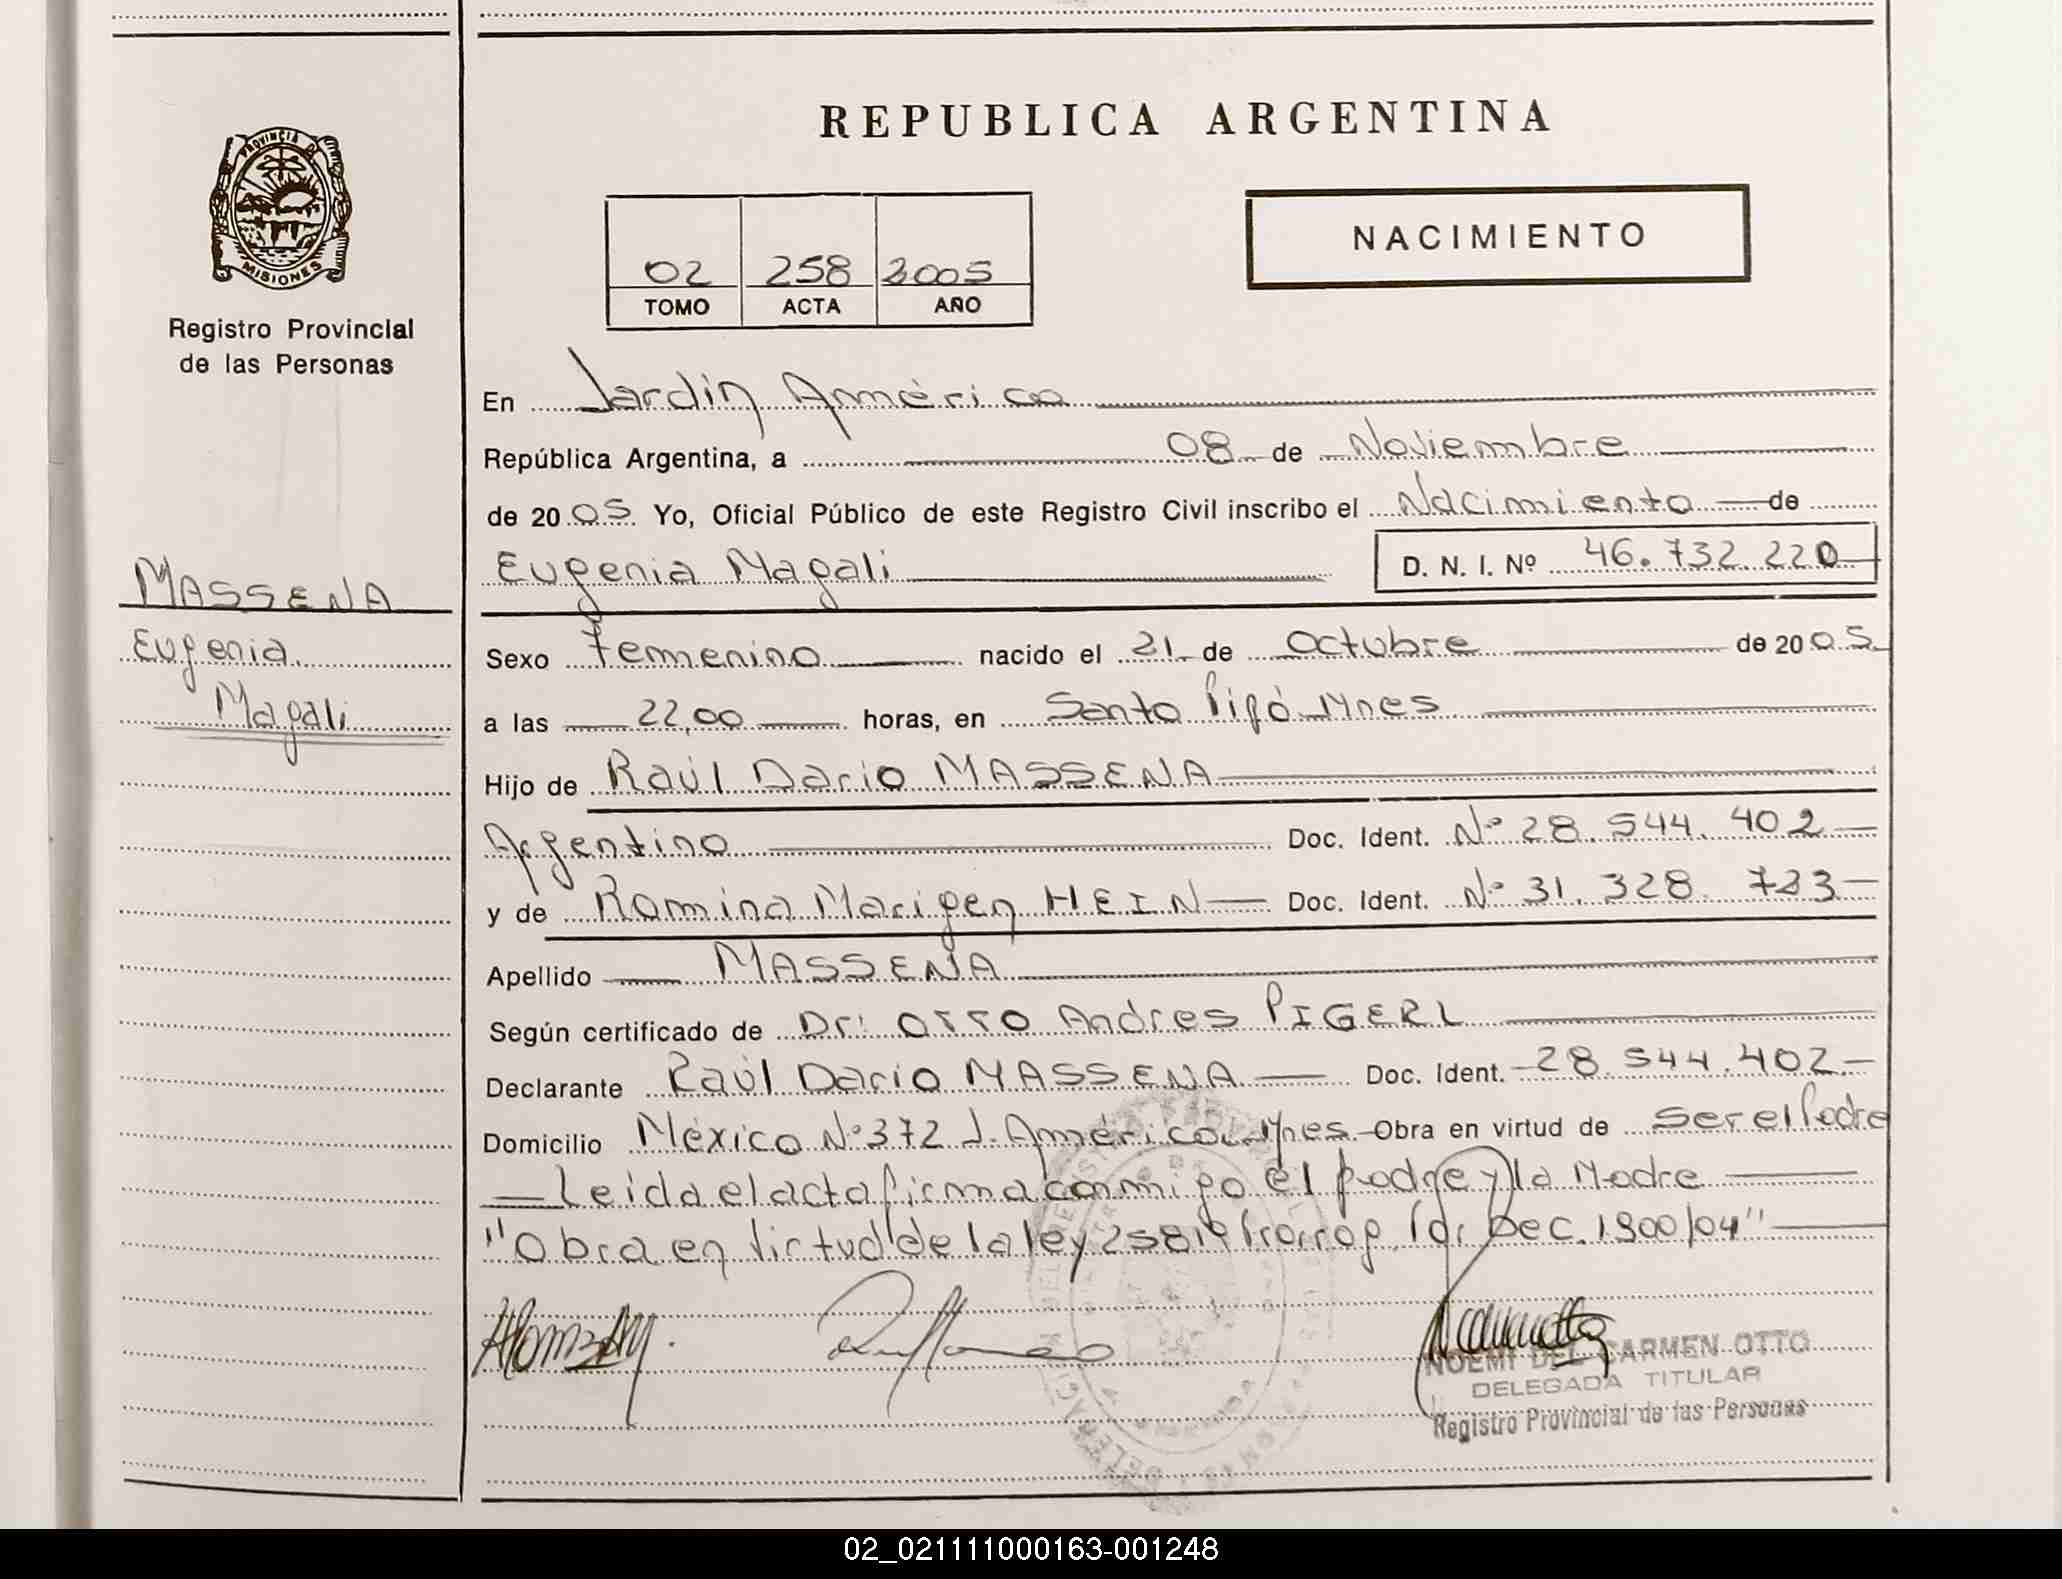 REPUBLICA ARGENTINA
PROVINCIA DE
MISIONES
Registro Provincial
de las Personas
02 258 2005
TOMO ACTA AÑO
NACIMIENTO
En Jardín América
República Argentina, a 08 de Noviembre
de 2005 Yo, Oficial Público de este Registro Civil inscribo el Nacimiento de
Eugenia Magali D. N. I. Nº 46.732.220
MASSENA
Eugenia
Magali
Sexo Femenino nacido el 21 de Octubre de 2005
a las 22,00 horas, en Santo Pipó Mnes
Hijo de Raúl Dario MASSENA
Argentino Doc. Ident. Nº 28.544.402
y de Romina Marigen HEIN Doc. Ident. Nº 31.328.733
Apellido MASSENA
Según certificado de Dr: OTTO Andres PIGERL
Declarante Raúl Dario MASSENA Doc. Ident. 28.544.402
Domicilio México Nº 372 J. América Mnes. Obra en virtud de ser el Padre
Leida el acta firma conmigo el padre y la Madre
"Obra en Virtud de la ley 25819 Prorrog. Por Dec. 1900/04"
NOEMI DEL CARMEN OTTO
DELEGADA TITULAR
Registro Provincial de las Personas
02_021111000163-001248